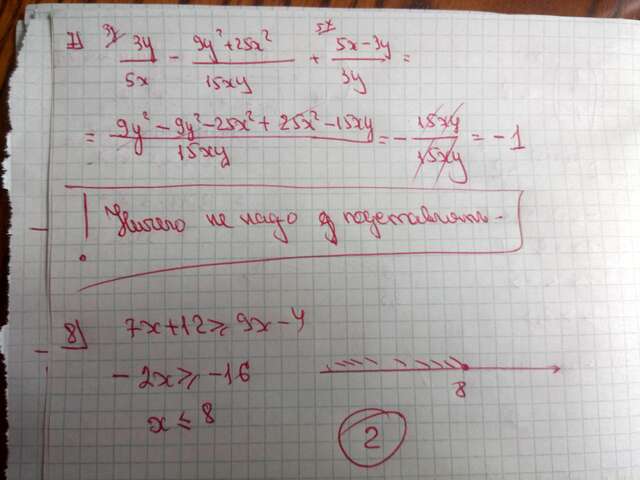 7) 3y/ 3y/5x − (9y² + 25x²)/15xy + 5x/ (5x − 3y)/3y =
= (9y² − 9y² − 25x² + 25x² − 15xy)/15xy = − 15xy/15xy = −1
! Ничего не надо подставлять.
8) 7x + 12 ≥ 9x − 4
− 2x ≥ − 16
x ≤ 8
8
2